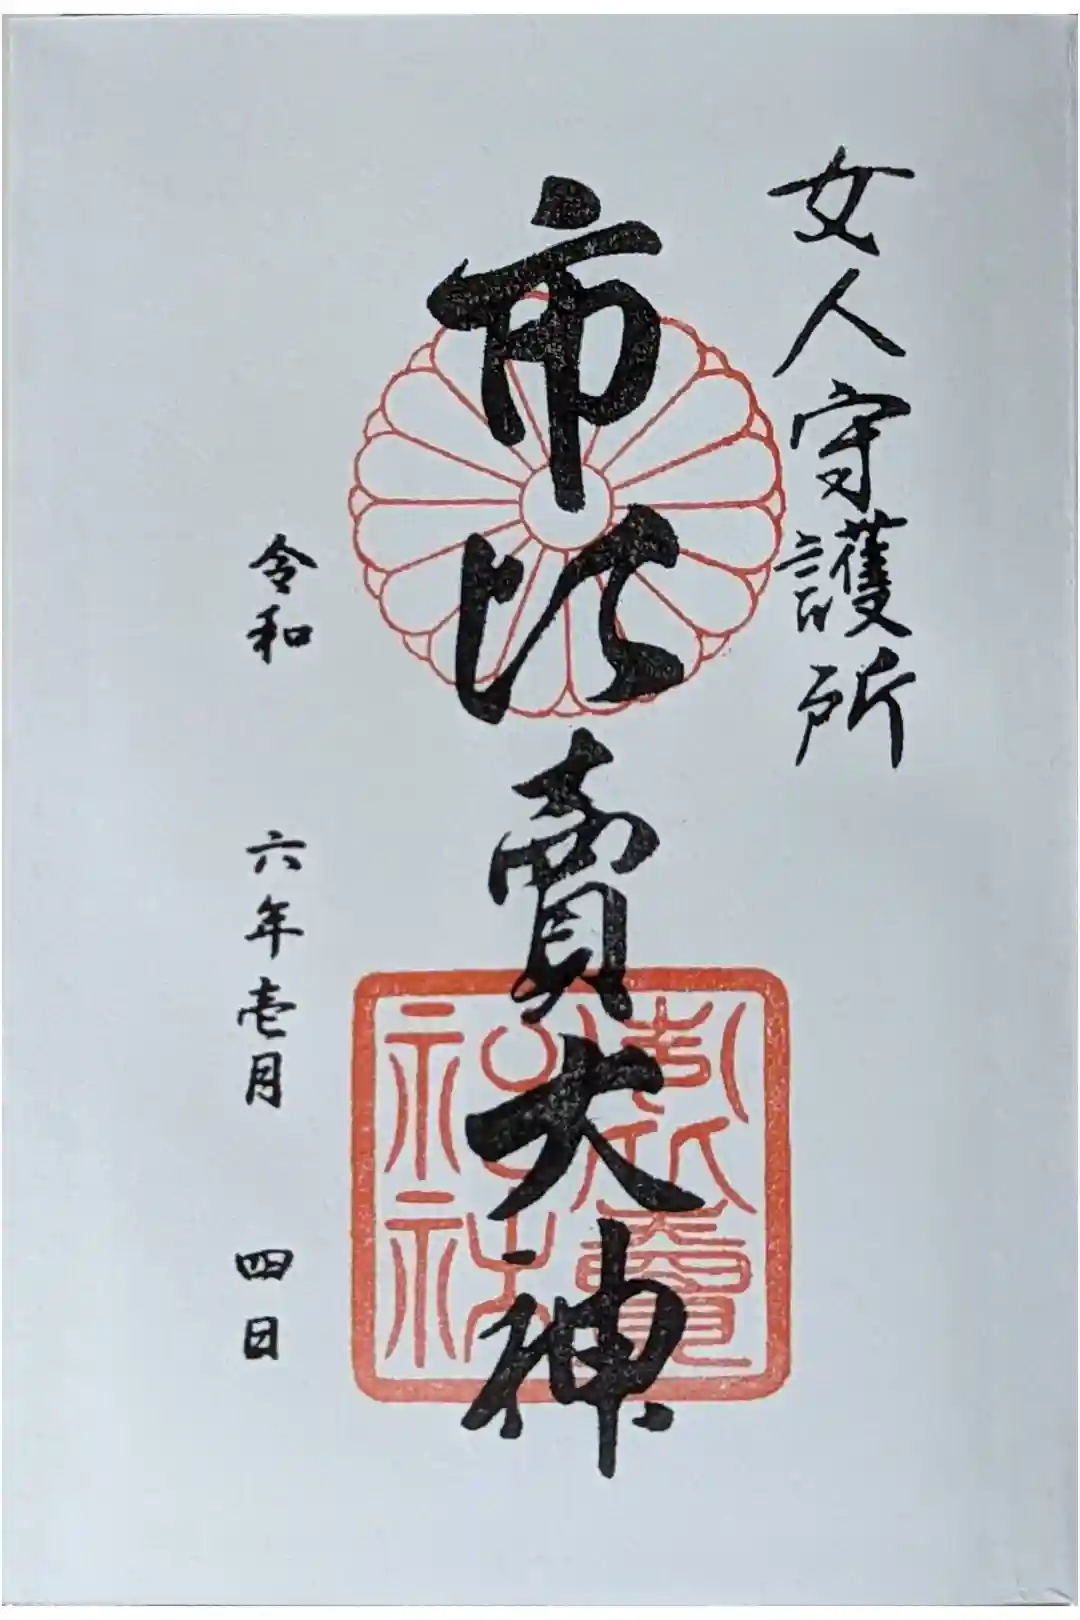 女人守護所
市比賣大神
市比賣神社
令和 六年壱月 四日